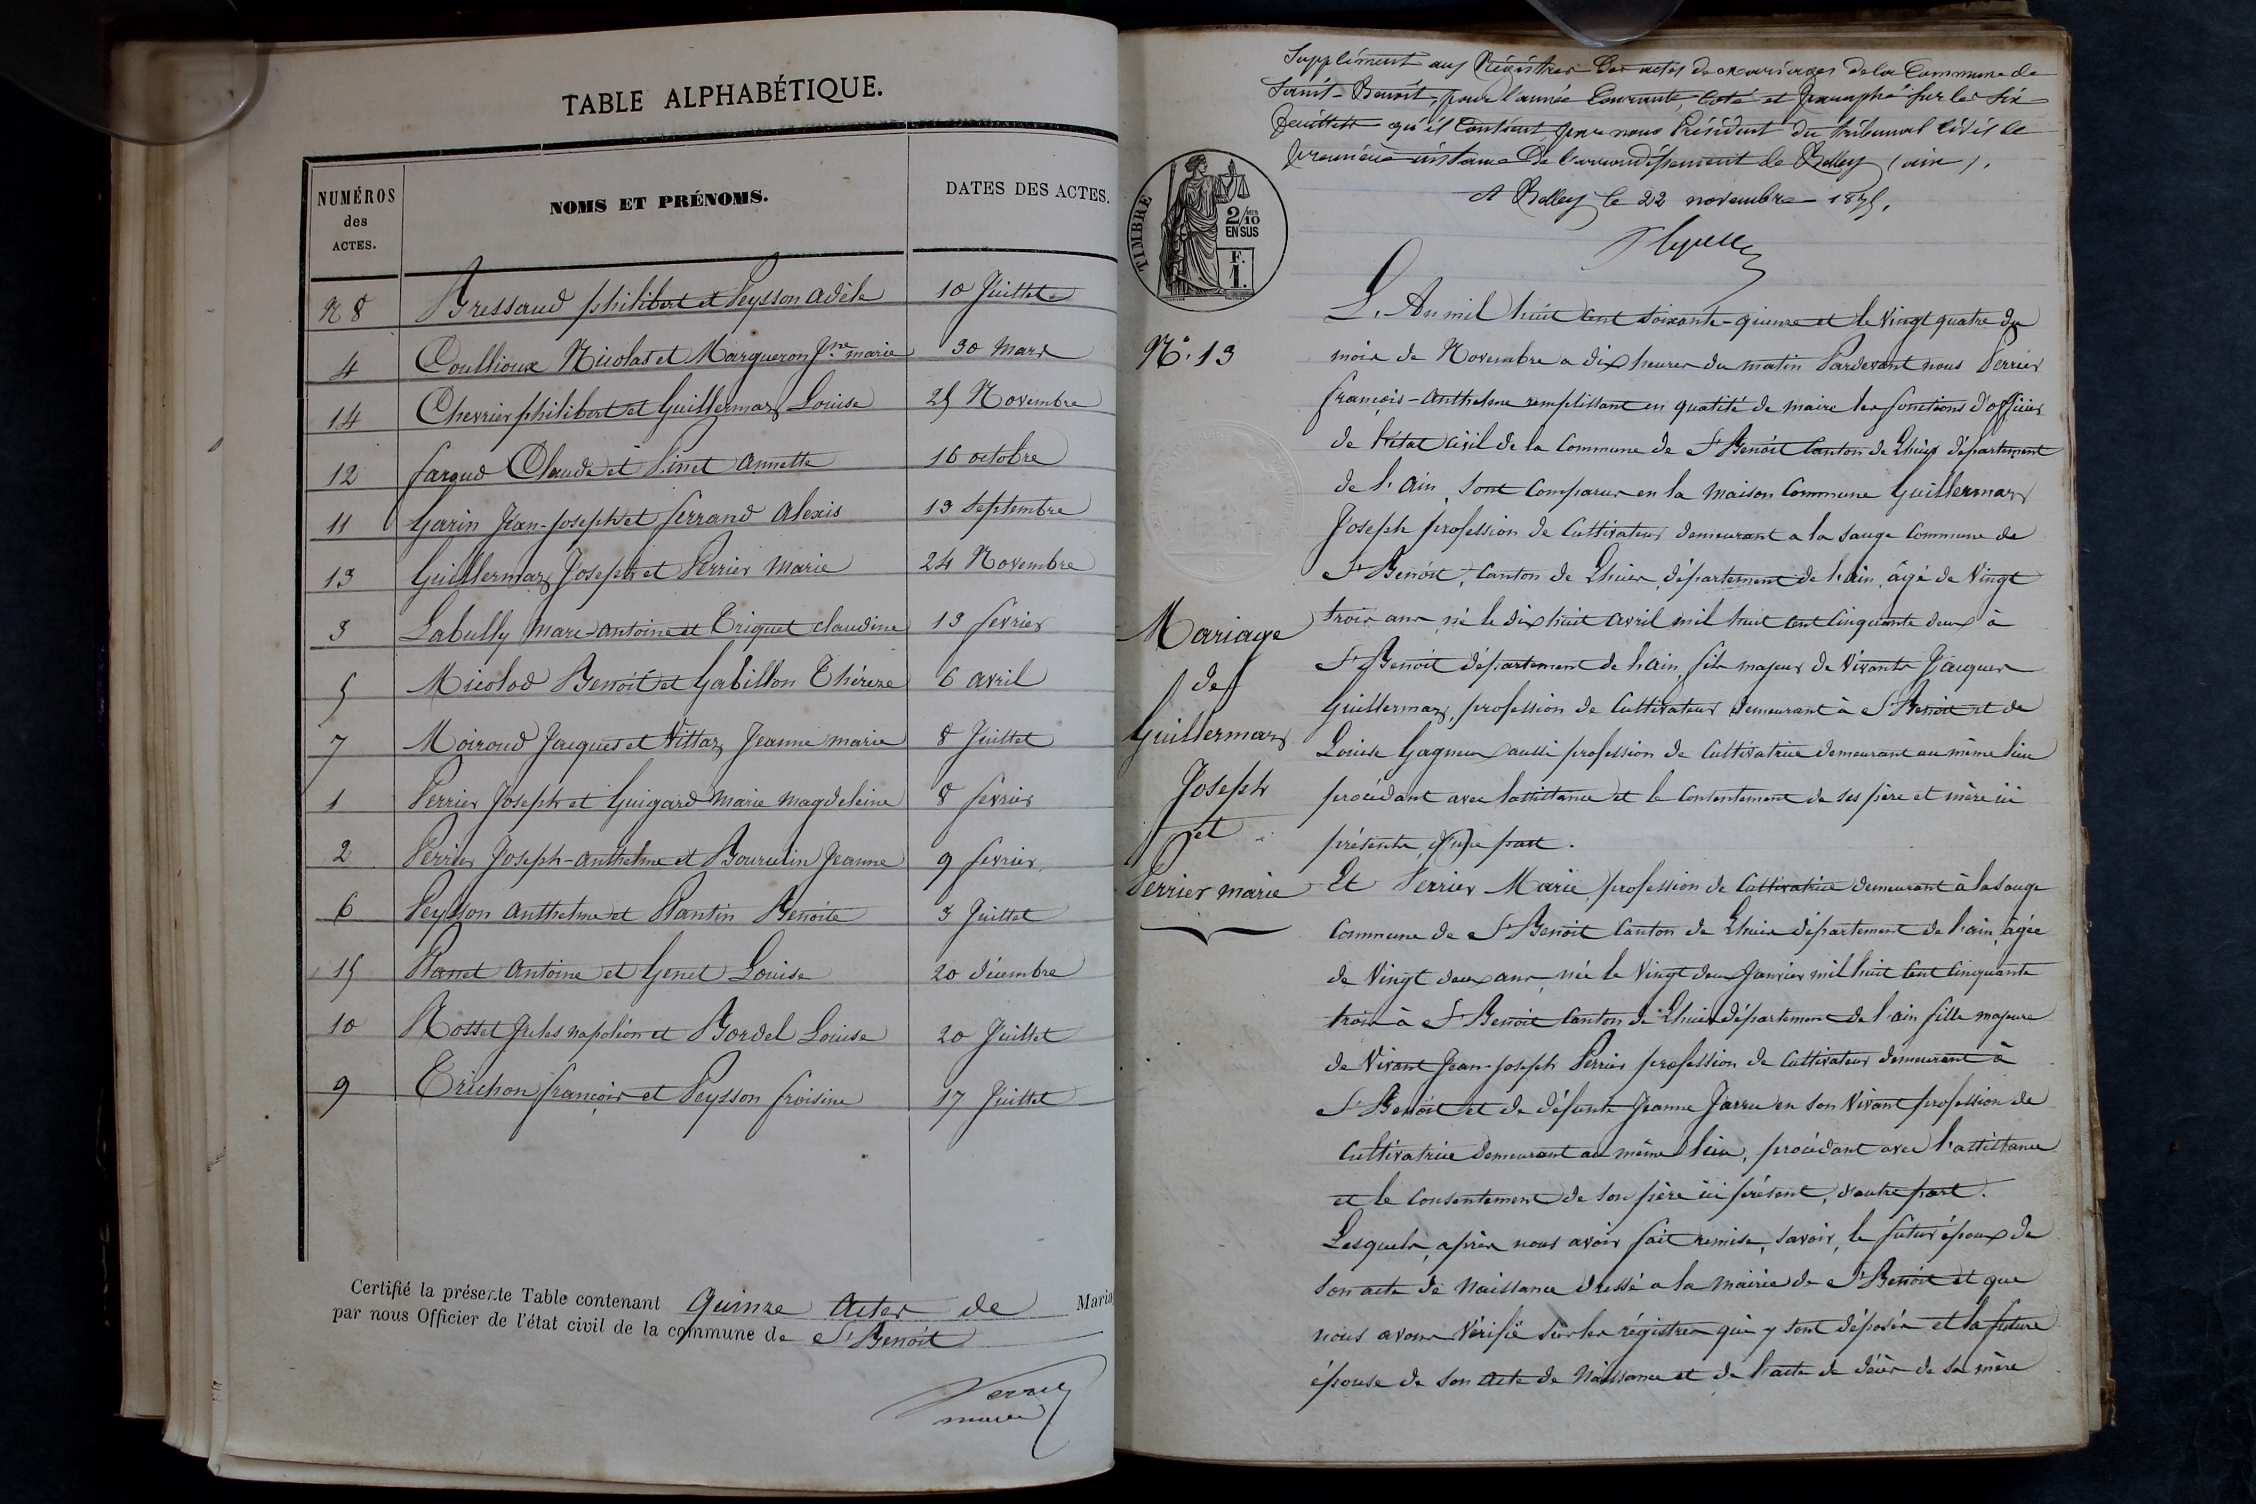 TABLE ALPHABÉTIQUE.
NUMÉROS des ACTES. NOMS ET PRÉNOMS. DATES DES ACTES.
N 8 Bressaud philibert et Peysson Adèle 10 Juillet
4 Coullioux Nicolas et Margueron Jne marie 30 Mars
14 Chevrier philibert et Guillermaz Louise 25 Novembre
12 faroud Claude et Pinet Annette 16 octobre
11 Garin Jean-joseph et ferrand Alexis 13 Septembre
13 Guillermaz Joseph et Perrier Marie 24 Novembre
3 Labully Marc-antoine et Triquet claudine 13 fevrier
5 Micolod Benoît et Gabillon Thérèze 6 avril
7 Moiroud Jacques et Vittaz Jeanne marie 8 Juillet
1 Perrier Joseph et Guigard Marie Magdeleine 8 fevrier
2 Perrier Joseph-anthelme et Bourulin Jeanne 9 fevrier
6 Peysson Anthelme et Plantin Benoite 3 Juillet
15 Planet Antoine et Genet Louise 20 décembre
10 Rosset Jules napoléon et Bordel Louise 20 Juillet
9 Trichon françois et Peysson froisine 17 Juillet
Certifié la présente Table contenant quinze Actes de Maria
par nous Officier de l'état civil de la commune de St Benoit
Perrier
maire
Supplément aux Régistres des actes de mariages de la Commune de
Saint-Benoit, pour l'année Courante, coté et paraphé sur les six
feuillets qu'il contient par nous Président du tribunal civil de
première instance de l'arrondissement de Belley (ain).
A Belley le 22 novembre 1875.
TIMBRE
2/10
EN SUS
F.
1.
N° 13
Mariage
de
Guillermaz
Joseph
et
Perrier marie
L'An mil huit cent soixante-quinze et le vingt quatre du
mois de Novembre a dix heures du matin Pardevant nous Perrier
françois-Anthelme remplissant en qualité de maire les fonctions d'officier
de l'état civil de la Commune de St Benoit Canton de Lhuis département
de l'Ain, sont comparus en la Maison Commune Guillermaz
Joseph profession de Cultivateur demeurant a la sauge commune de
St Benoit, Canton de Lhuis, département de l'ain, âgé de vingt
trois ans né le dix huit avril mil huit cent cinquante deux à
St Benoit département de l'ain, fils majeur de vivants Jacques
Guillermaz, profession de Cultivateur demeurant à St Benoit et de
Louise Gagneux aussi profession de Cultivatrice demeurant au même lieu
procédant avec l'assistance et le consentement de ses père et mère ici
présents, d'une part.
Et Perrier Marie, profession de Cultivatrice demeurant à la sauge
Commune de St Benoit Canton de Lhuis département de l'ain, âgée
de vingt deux ans, née le vingt deux Janvier mil huit cent cinquante
trois à St Benoit Canton de Lhuis département de l'ain fille majeure
de vivant Jean-joseph Perrier profession de Cultivateur demeurant à
St Benoit et de défunte Jeanne Jarru en son vivant profession de
Cultivatrice demeurant au même lieu, procédant avec l'assistance
et le consentement de son père ici présent, d'autre part.
Lesquels, après nous avoir fait remise, savoir, le futur époux de
son acte de Naissance dressé a la mairie de St Benoit et que
nous avons vérifié sur les régistres qui y sont déposés et la future
épouse de son acte de Naissance et de l'acte de décès de sa mère